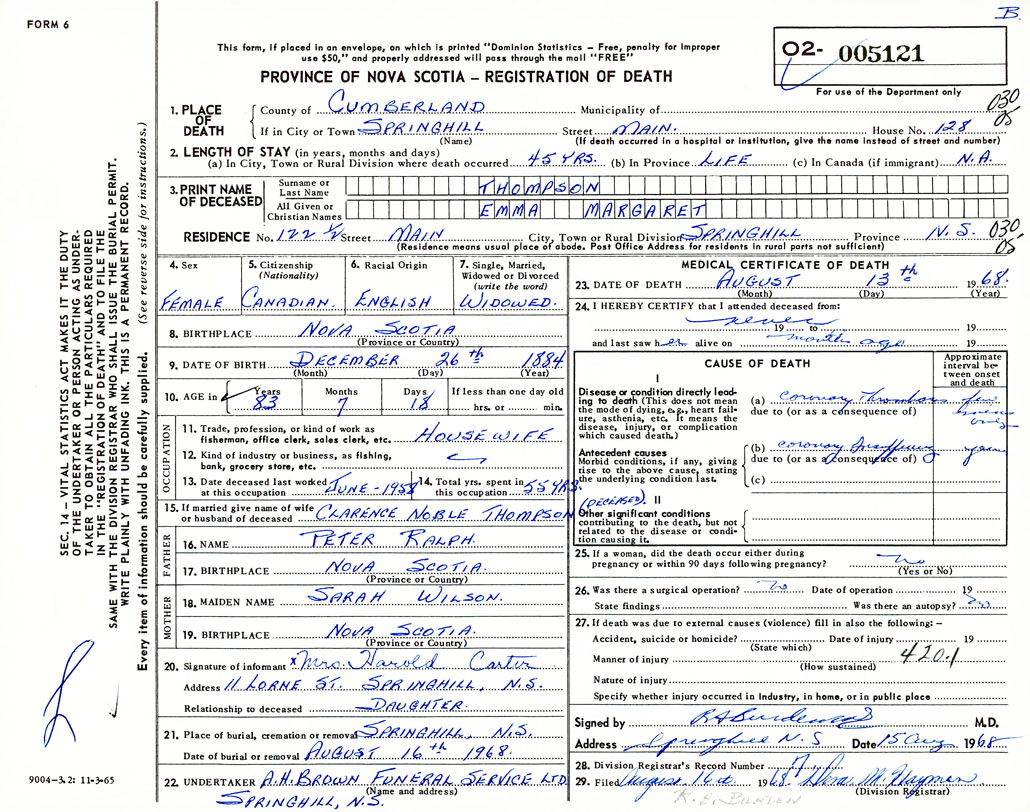 B.
FORM 6
This form, if placed in an envelope, on which is printed "Dominion Statistics – Free, penalty for improper
use $50," and properly addressed will pass through the mail "FREE"
PROVINCE OF NOVA SCOTIA – REGISTRATION OF DEATH
02- 005121
For use of the Department only
SEC. 14 – VITAL STATISTICS ACT MAKES IT THE DUTY
OF THE UNDERTAKER OR PERSON ACTING AS UNDER-
TAKER TO OBTAIN ALL THE PARTICULARS REQUIRED
IN THE "REGISTRATION OF DEATH" AND TO FILE THE
SAME WITH THE DIVISION REGISTRAR WHO SHALL ISSUE THE BURIAL PERMIT.
WRITE PLAINLY WITH UNFADING INK. THIS IS A PERMANENT RECORD.
Every item of information should be carefully supplied. (See reverse side for instructions.)
1. PLACE OF DEATH
County of CUMBERLAND Municipality of 030
05
If in City or Town SPRINGHILL Street MAIN. House No. 128
(Name) (If death occurred in a hospital or institution, give the name instead of street and number)
2. LENGTH OF STAY (in years, months and days)
(a) In City, Town or Rural Division where death occurred 45 YRS. (b) In Province LIFE (c) In Canada (if immigrant) N.A.
3. PRINT NAME OF DECEASED
Surname or Last Name THOMPSON
All Given or Christian Names EMMA MARGARET
RESIDENCE No. 122 1/2 Street MAIN City, Town or Rural Division SPRINGHILL Province N.S. 030
05
(Residence means usual place of abode. Post Office Address for residents in rural parts not sufficient)
4. Sex FEMALE
5. Citizenship (Nationality) CANADIAN.
6. Racial Origin ENGLISH
7. Single, Married, Widowed or Divorced (write the word) WIDOWED.
8. BIRTHPLACE NOVA SCOTIA
(Province or Country)
9. DATE OF BIRTH DECEMBER 26th 1884
(Month) (Day) (Year)
10. AGE in Years 83 Months 7 Days 18 If less than one day old
hrs. or min.
OCCUPATION
11. Trade, profession, or kind of work as
fisherman, office clerk, sales clerk, etc. HOUSEWIFE
12. Kind of industry or business, as fishing,
bank, grocery store, etc.
13. Date deceased last worked
at this occupation JUNE - 1958
14. Total yrs. spent in
this occupation 55 YRS.
15. If married give name of wife
or husband of deceased CLARENCE NOBLE THOMPSON (DECEASED).
FATHER
16. NAME PETER RALPH.
17. BIRTHPLACE NOVA SCOTIA.
(Province or Country)
MOTHER
18. MAIDEN NAME SARAH WILSON.
19. BIRTHPLACE NOVA SCOTIA.
(Province or Country)
20. Signature of informant x Mrs. Harold Carter
Address 11 LORNE ST. SPRINGHILL, N.S.
Relationship to deceased DAUGHTER.
21. Place of burial, cremation or removal SPRINGHILL, N.S.
Date of burial or removal AUGUST 16th 1968.
22. UNDERTAKER A.H. BROWN FUNERAL SERVICE LTD
(Name and address)
SPRINGHILL, N.S.
9004-3.2: 11-3-65
MEDICAL CERTIFICATE OF DEATH
23. DATE OF DEATH AUGUST 13th 1968.
(Month) (Day) (Year)
24. I HEREBY CERTIFY that I attended deceased from:
never 19 to 19
and last saw her alive on months ago 19
CAUSE OF DEATH
Approximate interval between onset and death
I
Disease or condition directly leading to death (This does not mean the mode of dying, e.g., heart failure, asthenia, etc. It means the disease, injury, or complication which caused death.)
(a) coronary Thrombosis few
due to (or as a consequence of)
Antecedent causes
Morbid conditions, if any, giving rise to the above cause, stating the underlying condition last.
(b) coronary years
due to (or as a consequence of)
(c)
II
Other significant conditions
contributing to the death, but not related to the disease or condition causing it.
25. If a woman, did the death occur either during
pregnancy or within 90 days following pregnancy? no
(Yes or No)
26. Was there a surgical operation? no Date of operation 19
State findings Was there an autopsy? no
27. If death was due to external causes (violence) fill in also the following: –
Accident, suicide or homicide? Date of injury 19
(State which)
Manner of injury 420.1
(How sustained)
Nature of injury
Specify whether injury occurred in industry, in home, or in public place
Signed by R A Burden M.D.
Address Springhill N.S Date 15 Aug 1968
28. Division Registrar's Record Number 7
29. Filed August 16th 1968
(Division Registrar)
BURDEN